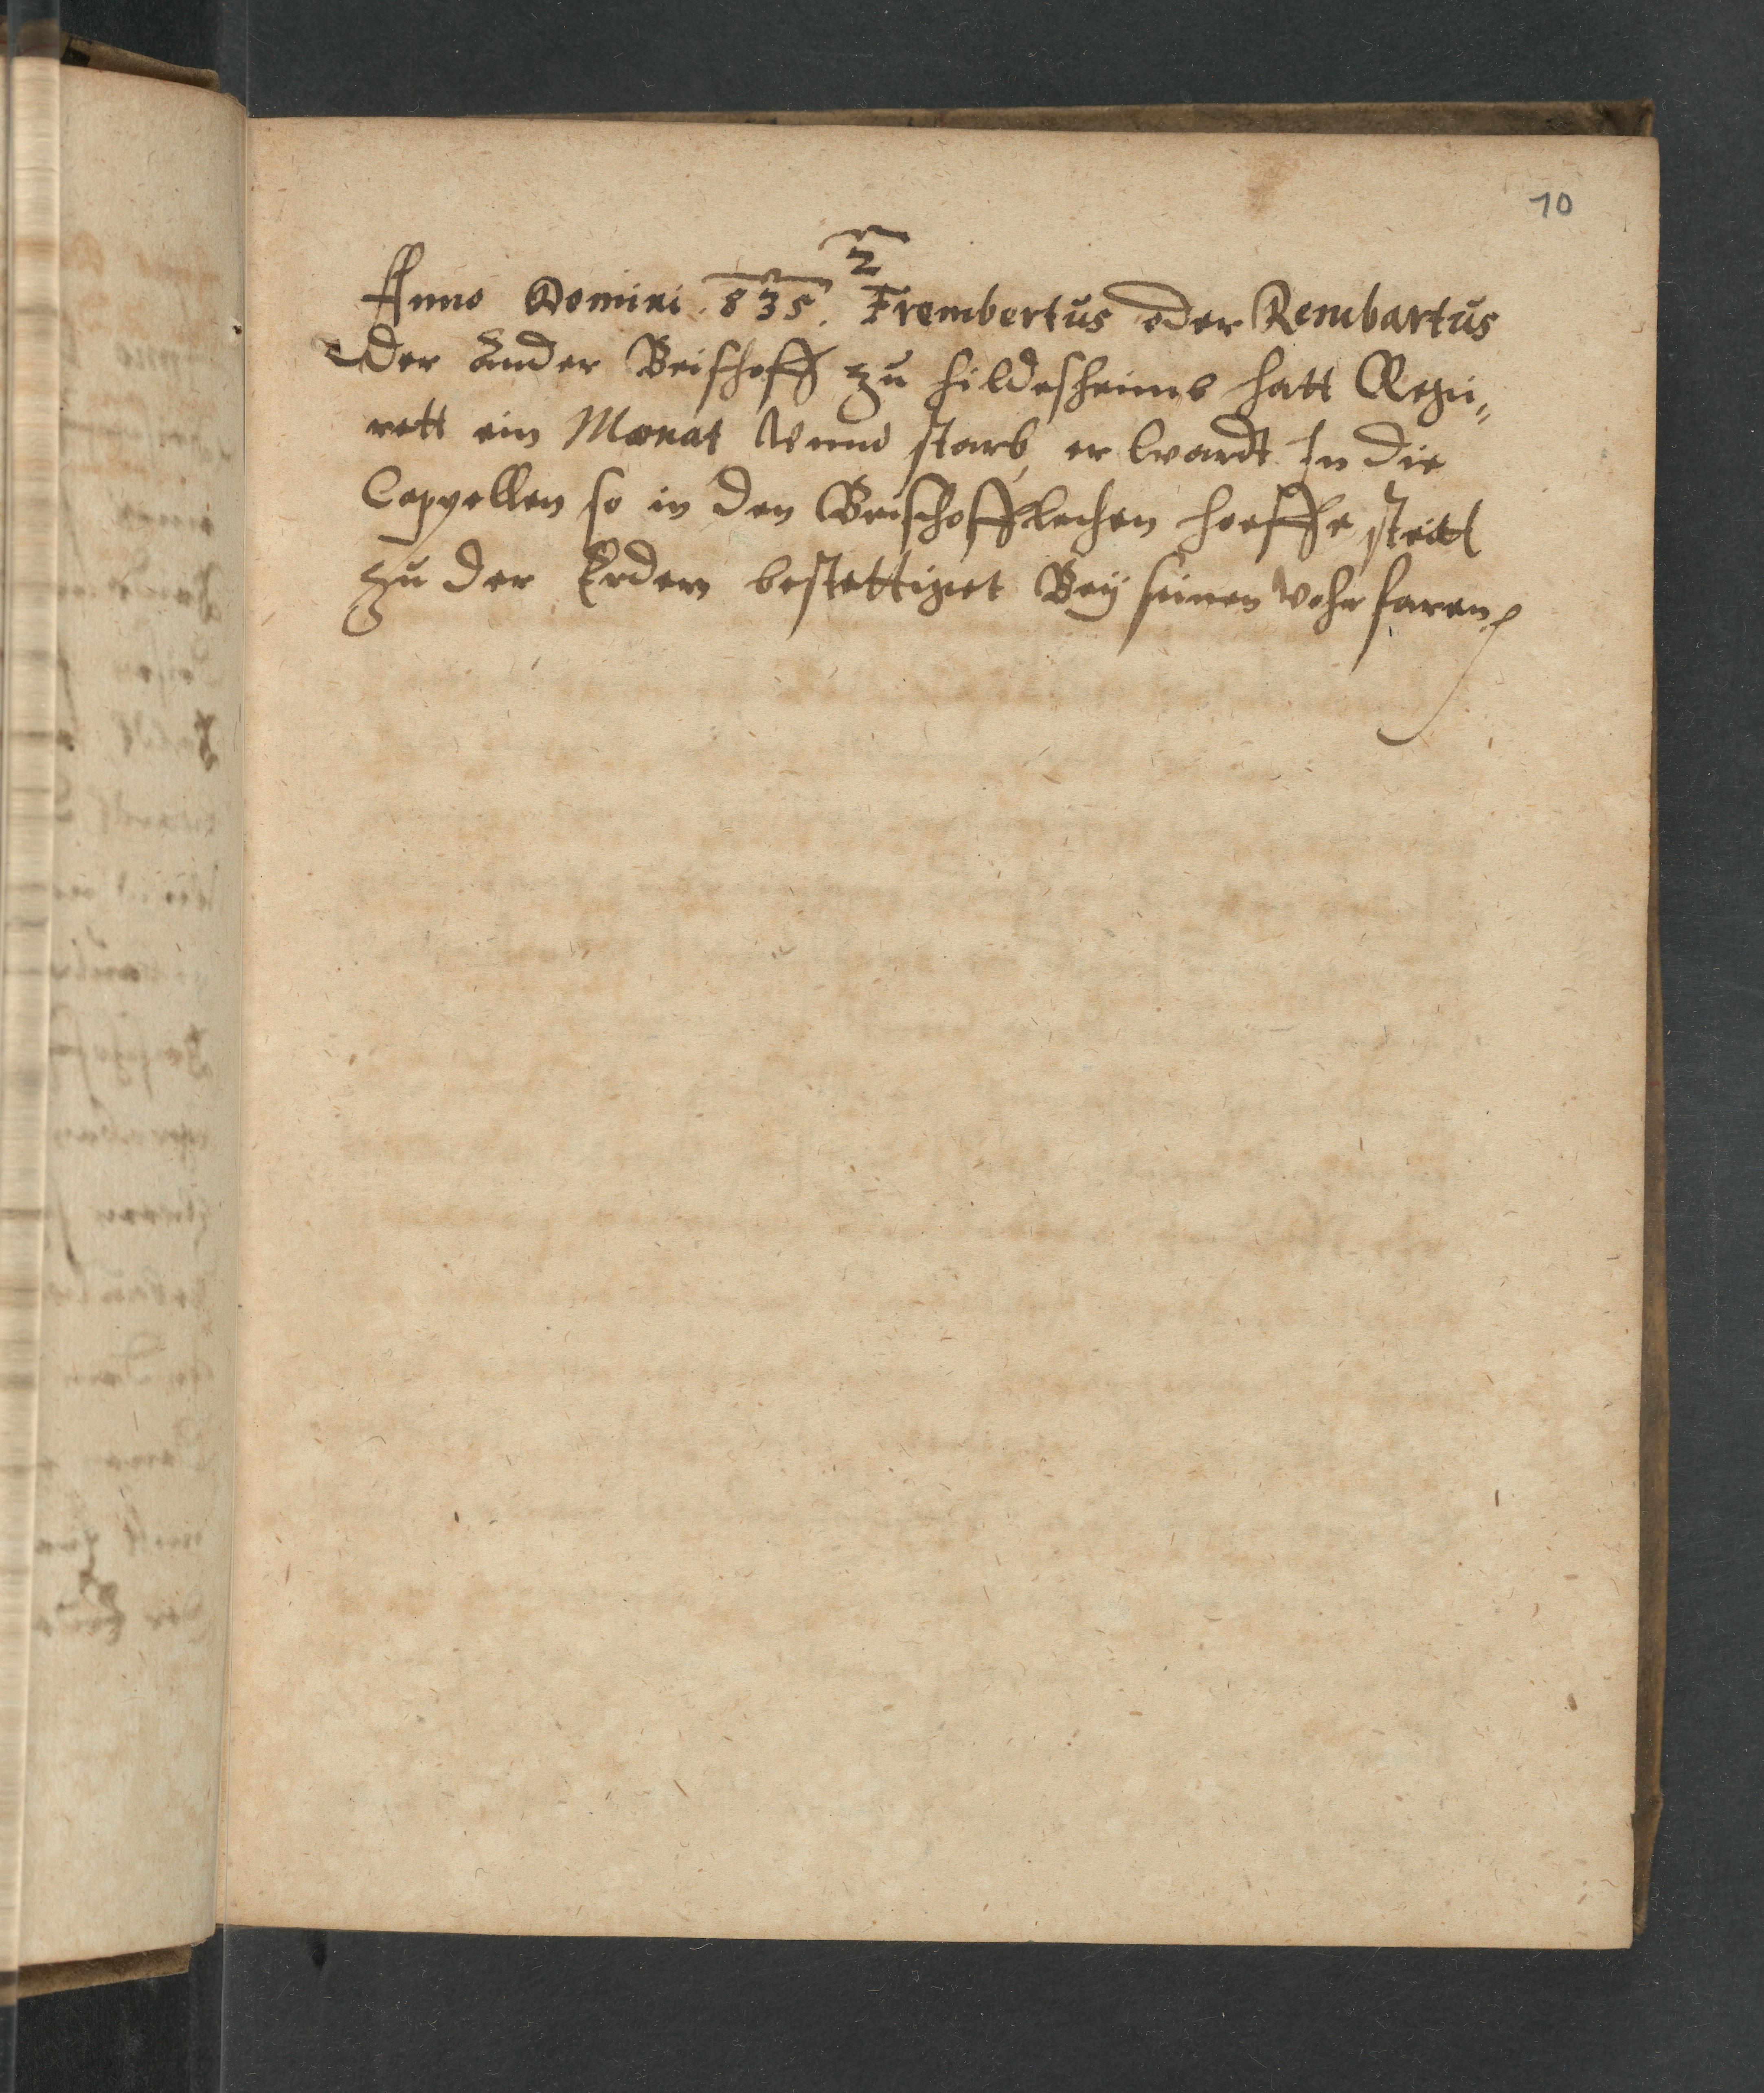 10
2
Anno Domini 835. Frembertus oder Rembartus
der ander Beischoff zu hildesheimb hatt Regi„
rett ein Monat Vnnd starb, er wardt In die
Cappellen so in den Beischofflechen hoeffe steitt
zu der Erden bestettiget Beÿ seinen vohrfaren